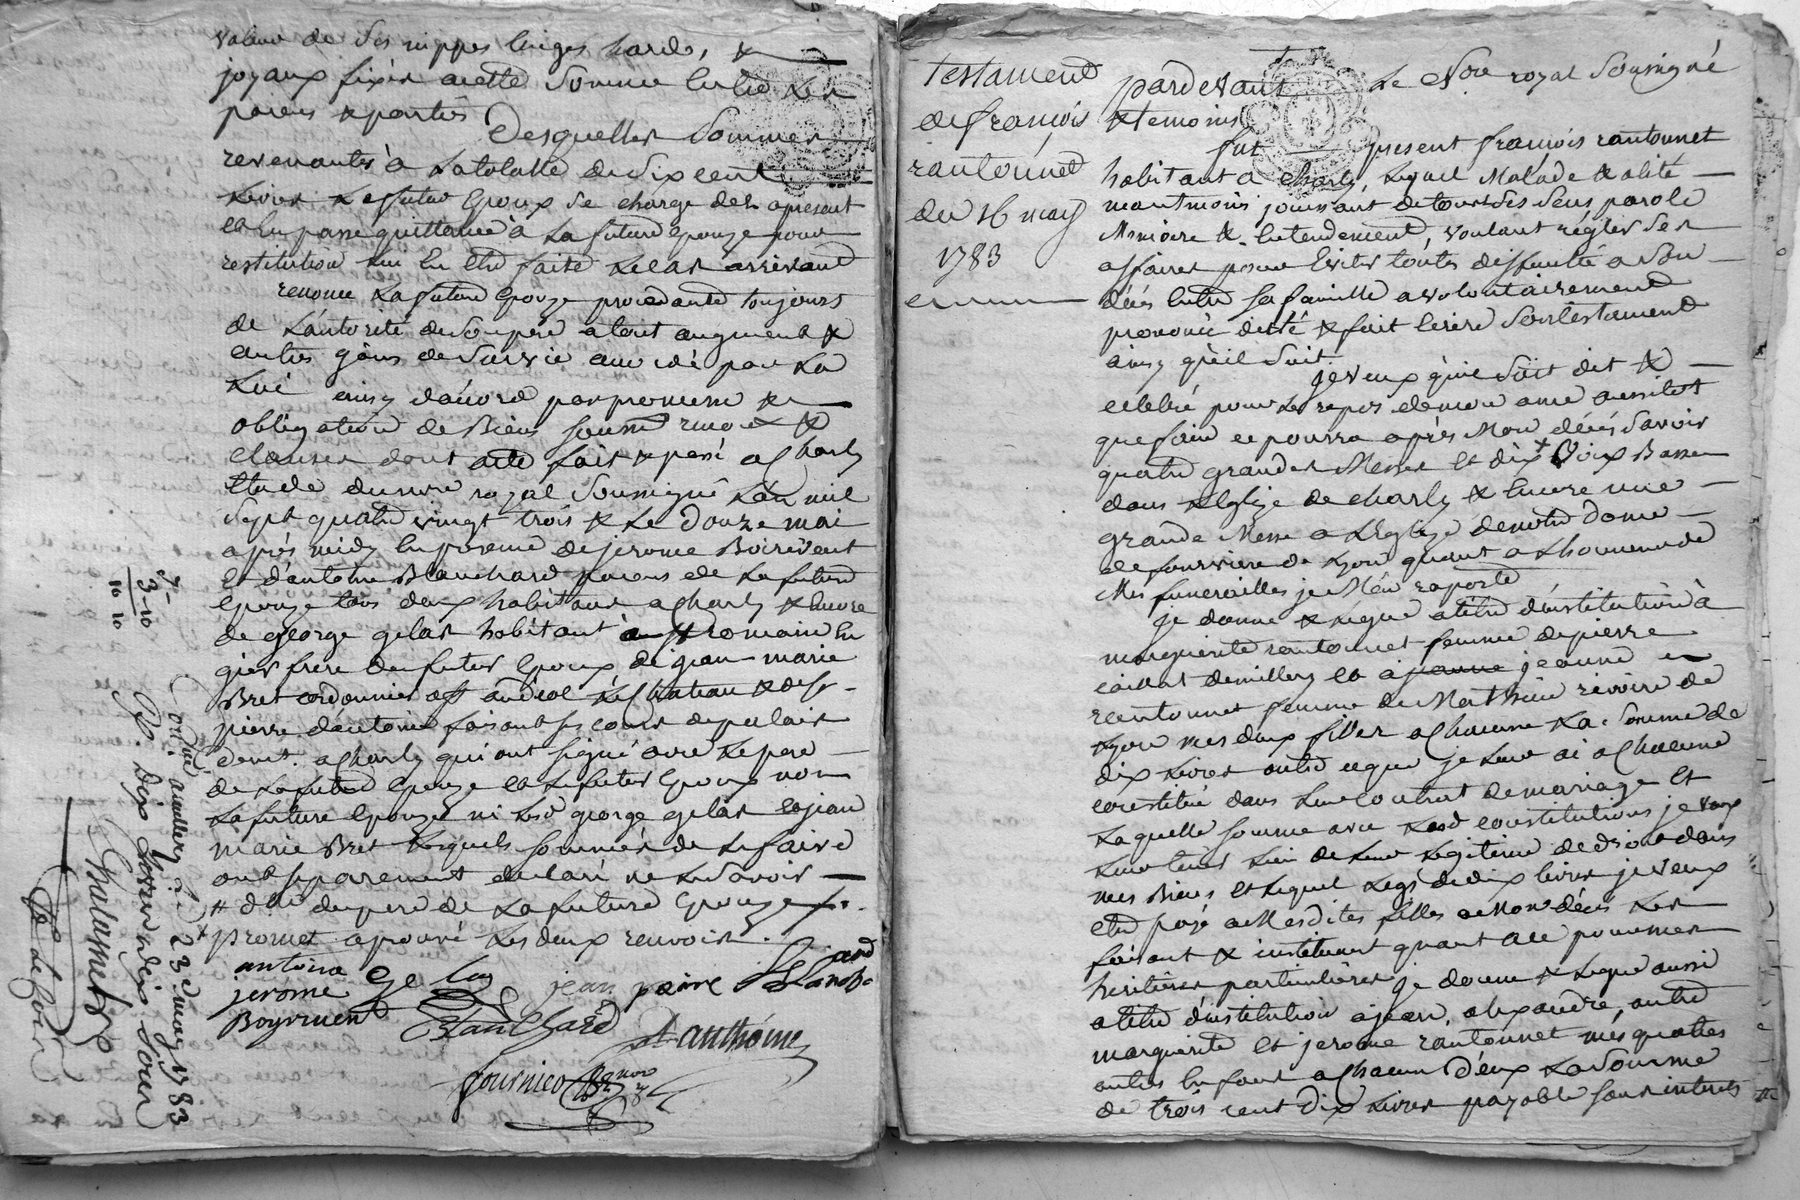 valeur de ses nippes linges hardes, &
joyaux fixés a cette somme entre les
parens & parties
Desquelles sommes
revenantes à la totalle de six cent
livres le futur Epoux se charge des apresent
et en passe quittance à la future epouze pour
restitution en etre faite le cas arrivant
renonce la future Epouze procedante toujours
de l'autorité de son pere a tout augment &
autres gains de survie accordé par la
Loi ainsy d'accord par promesse &
obligation de biens soumis renon &
clauses dont acte fait & passé a Charly
Etude du nore royal soussigné L'an mil
sept quatre vingt trois & Le Douze mai
après midy En presence de jerome Boirivent
Et d'antoine Blanchard parens de la future
Epouze tous deux habitans a Charly & Encore
de george gelas habitant a st romain En
gier frere du futur Epoux de jean marie
Bret cordonnier a st andeol le Chateau & de sr
pierre dantome faisant sy cour de palais
demt. a Charly qui ont signé avec le pere
de la future Epouze et le futur Epoux non
La future Epouze ni led george gelas et jean
marie Bret Lesquels sommés de le faire
ont separement declaré ne le savoir
# dlle du pere de la future Epouze /.
promet aprouvé les deux renvois.
antoine ge las jean paire Blanchard
jerome
Boyrivent Blanchard
Danthome
fournier nore
Conllé a millery Le 23 may 1783
Rx. Dix Livres dix sous
Chalamel
7
3-10
10 10
testament
de francois
rantonnet
du 16 may
1783
pardevant Le Nore royal soussigné
& temoins
fut present françois rantonnet
habitant a Charly, Lequel Malade & alité
neantmoins jouissant de tous ses sens parole
Memoire & Entendement, voulant régler ses
affaires pour Eviter toute difficulté a son
décés Entre sa famille a volontairement
prononcé dicté & fait Ecrire son testament
ainsy qu'il suit.
je veux qu'il soit dit &
celebré pour le repos de mon ame aussitot
que faire ce pourra après Mon décés savoir
quatre grandes Messes Et dix Voix Basse
dans l'Eglize de charly & Encore une
grande Messe a L'Eglize de notre Dame
de fourviere de Lyon quant a L'honneur de
Mes funerailles je M'en raporte
je donne & legue a titre d'institution à
marguerite rantonnet femme de pierre
caillat de millery et a jeanne jeanne
rantonnet femme de Mathieu rivoire de
Lyon mes deux filles a Chacune La somme de
dix Livres outre ce que je Leur ai a Chacune
constitué dans Leur Contrat de mariage Et
Laquelle somme avec Lesd constitutions je veux
Leur tenir Lieu de Leur Legitime de droit dans
mes Biens, Et Lequel Legs de dix livres je veux
etre payé a Mesdites filles a Mon décés Les
faisant & instituant quant a ce pour mes
heritieres particulieres je donne & Legue aussi
a titre d'institution a jean, alexandre, autre
marguerite Et jerome rantonnet mes quatres
autres Enfans a Chacun d'eux La somme
de trois cent dix Livres payable sans interets